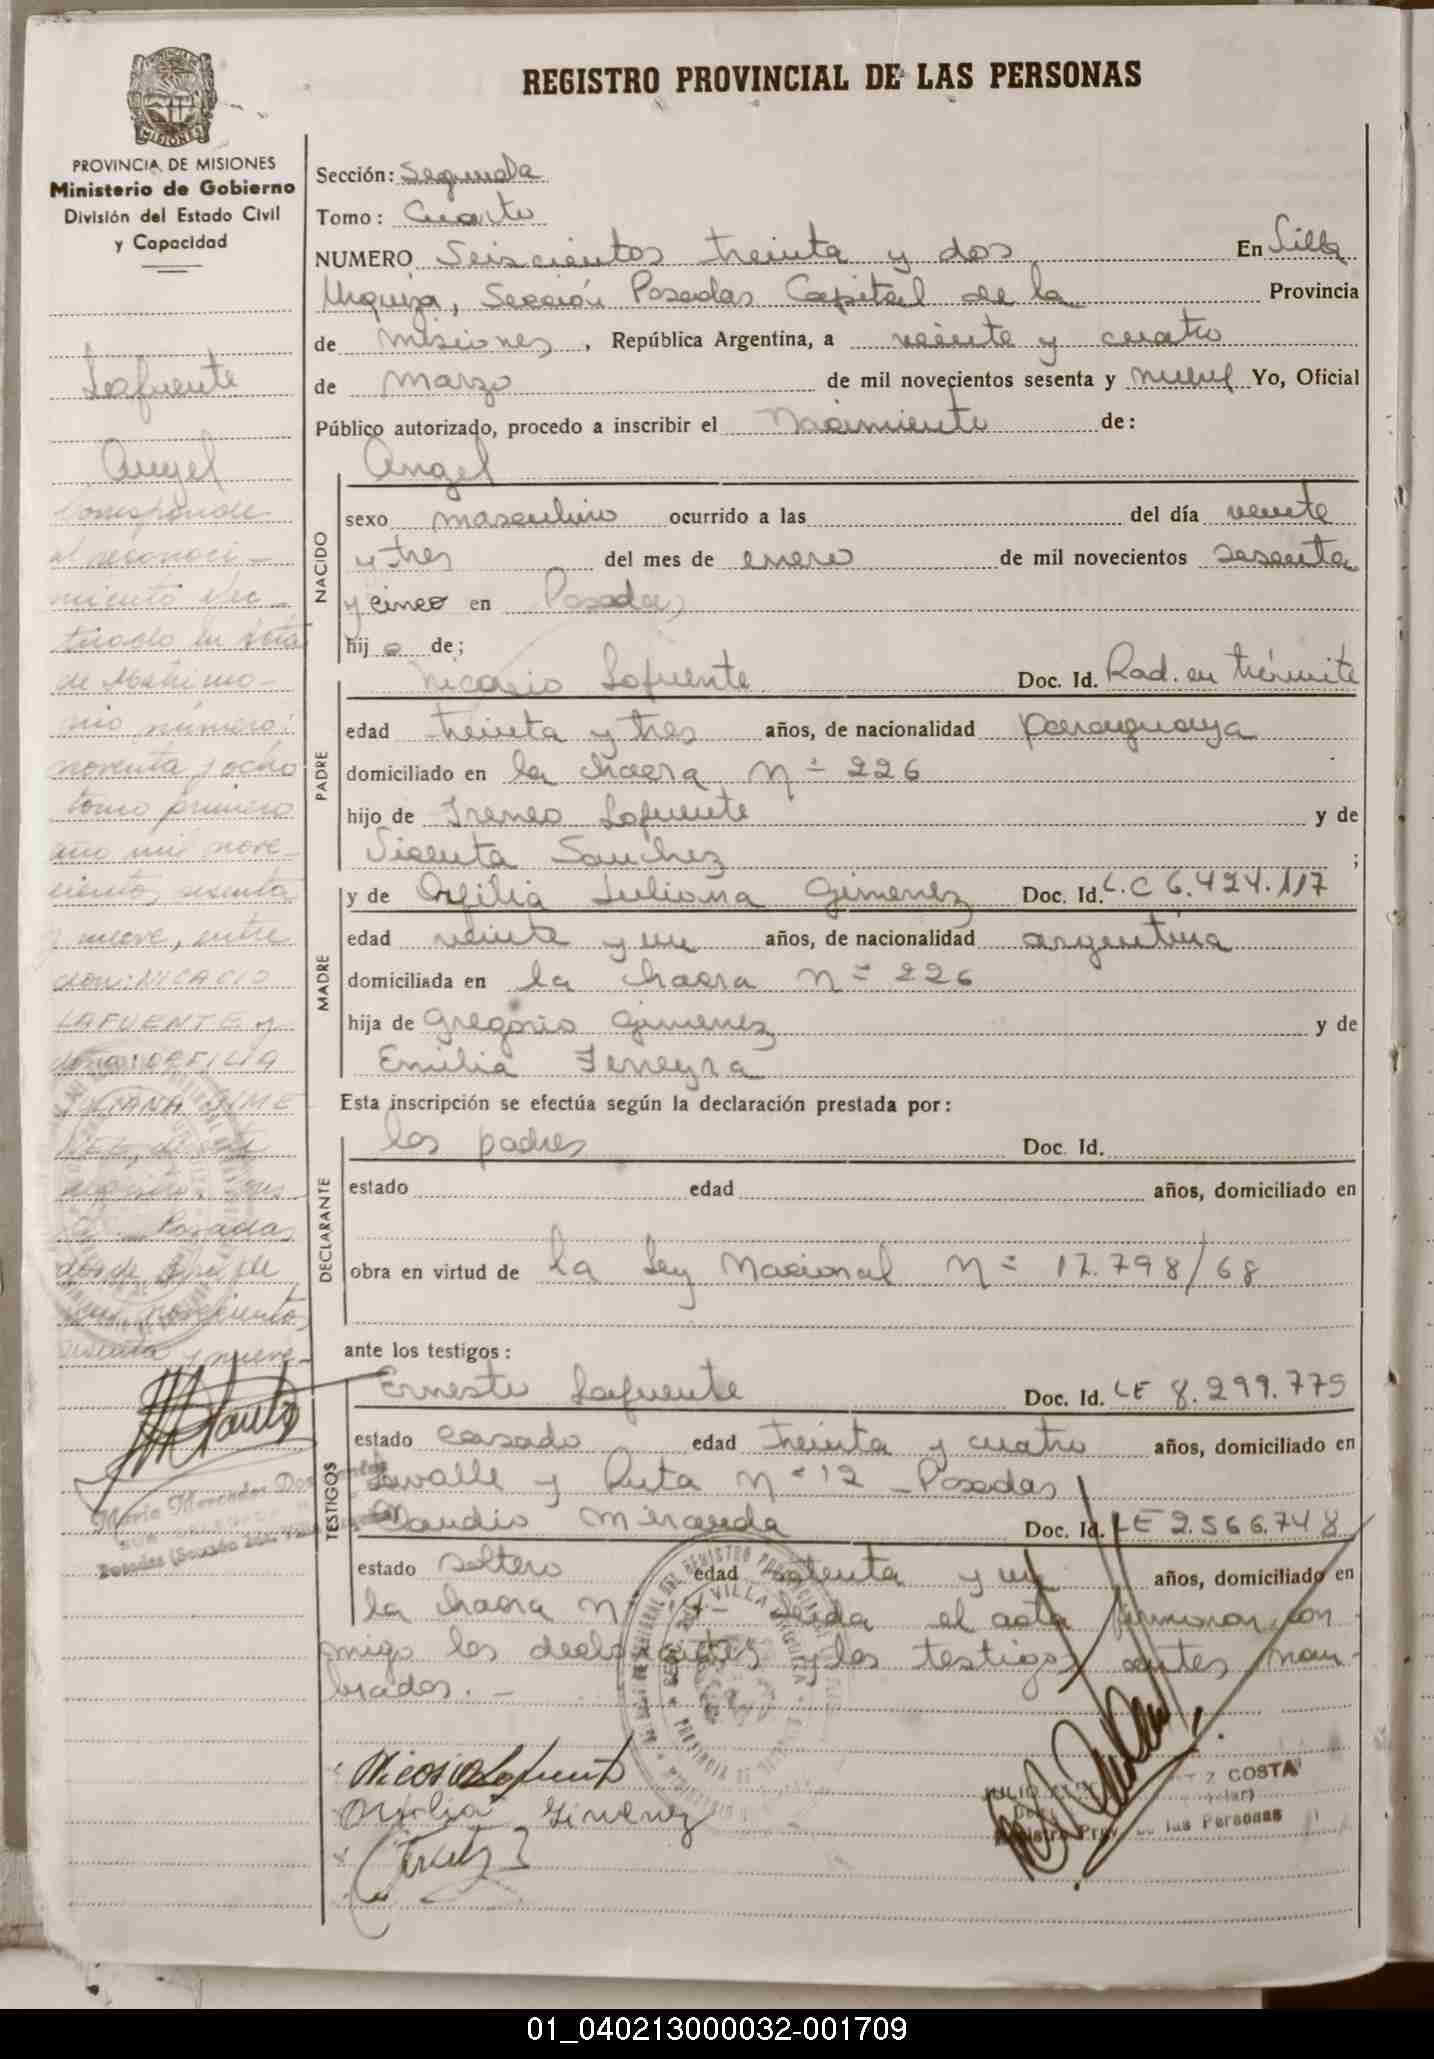 REGISTRO PROVINCIAL DE LAS PERSONAS
PROVINCIA DE MISIONES
Ministerio de Gobierno
División del Estado Civil
y Capacidad
Lafuente
Angel
Corresponde
al reconoci-
miento efec-
tuado en acta
de Matrimo-
nio número:
noventa y ocho
tomo primero
año mil nove-
cientos sesenta
y nueve, entre
don: NICACIO
LAFUENTE y
doña: ORFILIA
JULIANA GIME
NEZ,
Posadas,
de
novecientos
sesenta y nueve-
Maria Mercedes Dos Santos
Sección: Segunda
Tomo: Cuarto
NUMERO Seiscientos treinta y dos En Villa
Urquiza, Sección Posadas Capital de la Provincia
de Misiones, República Argentina, a veinte y cuatro
de marzo de mil novecientos sesenta y nueve Yo, Oficial
Público autorizado, procedo a inscribir el Nacimiento de:
NACIDO
Angel
sexo masculino ocurrido a las del día veinte
y tres del mes de enero de mil novecientos sesenta
y cinco en Posadas
hijo de;
PADRE
Nicasio Lafuente Doc. Id. Rad. en trámite
edad treinta y tres años, de nacionalidad paraguaya
domiciliado en la chacra Nº 226
hijo de Ireneo Lafuente y de
Vicenta Sanchez ;
MADRE
y de Orfilia Juliana Gimenez Doc. Id. L.C 6.424.117
edad veinte y un años, de nacionalidad argentina
domiciliada en la chacra Nº 226
hija de Gregorio Gimenez y de
Emilia Ferreyra
Esta inscripción se efectúa según la declaración prestada por:
DECLARANTE
los padres Doc. Id.
estado edad años, domiciliado en
obra en virtud de la Ley Nacional Nº 17.798/68
ante los testigos:
TESTIGOS
Ernesto Lafuente Doc. Id. LE 8.299.775
estado casado edad treinta y cuatro años, domiciliado en
Lavalle y Ruta Nº 12 - Posadas
Claudio Miranda Doc. Id. LE 2.566.748
estado soltero edad setenta y un años, domiciliado en
la chacra Nº leida el acta firmaron con
migo los declarantes y los testigos antes nom-
brados. -
Nicasio Lafuente
Orfilia Gimenez
JULIO COSTA
las Personas
01_040213000032-001709